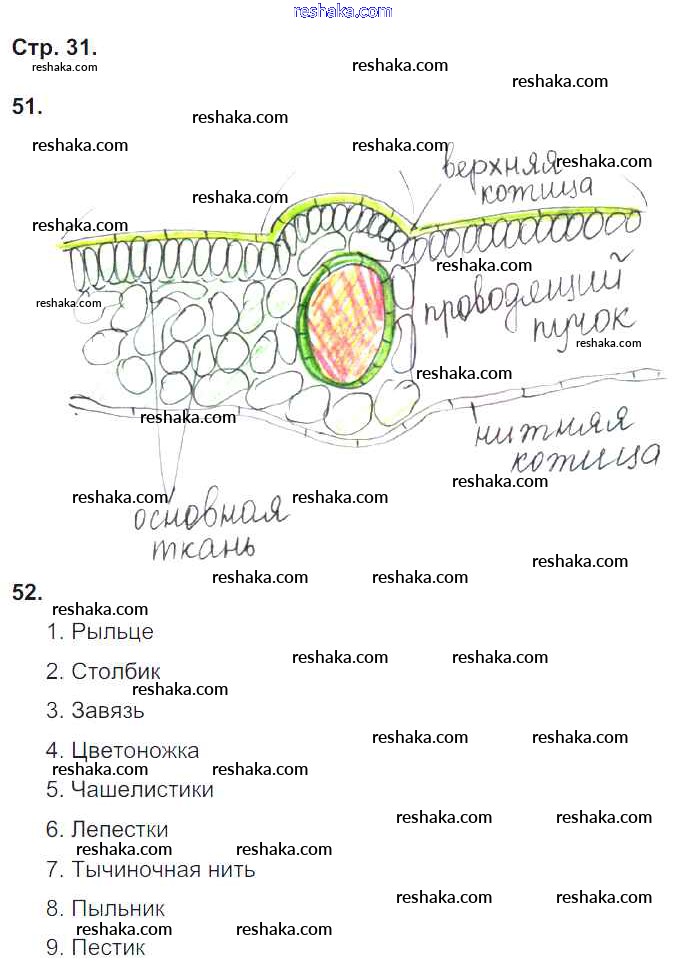 reshaka.com
Стр. 31.
reshaka.com
reshaka.com
reshaka.com
51.
reshaka.com
reshaka.com
reshaka.com
верхняя
reshaka.com
кожица
reshaka.com
reshaka.com
reshaka.com
проводящий
reshaka.com
пучок
reshaka.com
reshaka.com
reshaka.com
нижняя
кожица
reshaka.com
reshaka.com
reshaka.com
основная
ткань
reshaka.com
reshaka.com
reshaka.com
52.
reshaka.com
1. Рыльце
reshaka.com
reshaka.com
2. Столбик
reshaka.com
3. Завязь
reshaka.com
reshaka.com
4. Цветоножка
reshaka.com
reshaka.com
5. Чашелистики
reshaka.com
reshaka.com
6. Лепестки
reshaka.com
reshaka.com
7. Тычиночная нить
reshaka.com
reshaka.com
8. Пыльник
reshaka.com
reshaka.com
9. Пестик